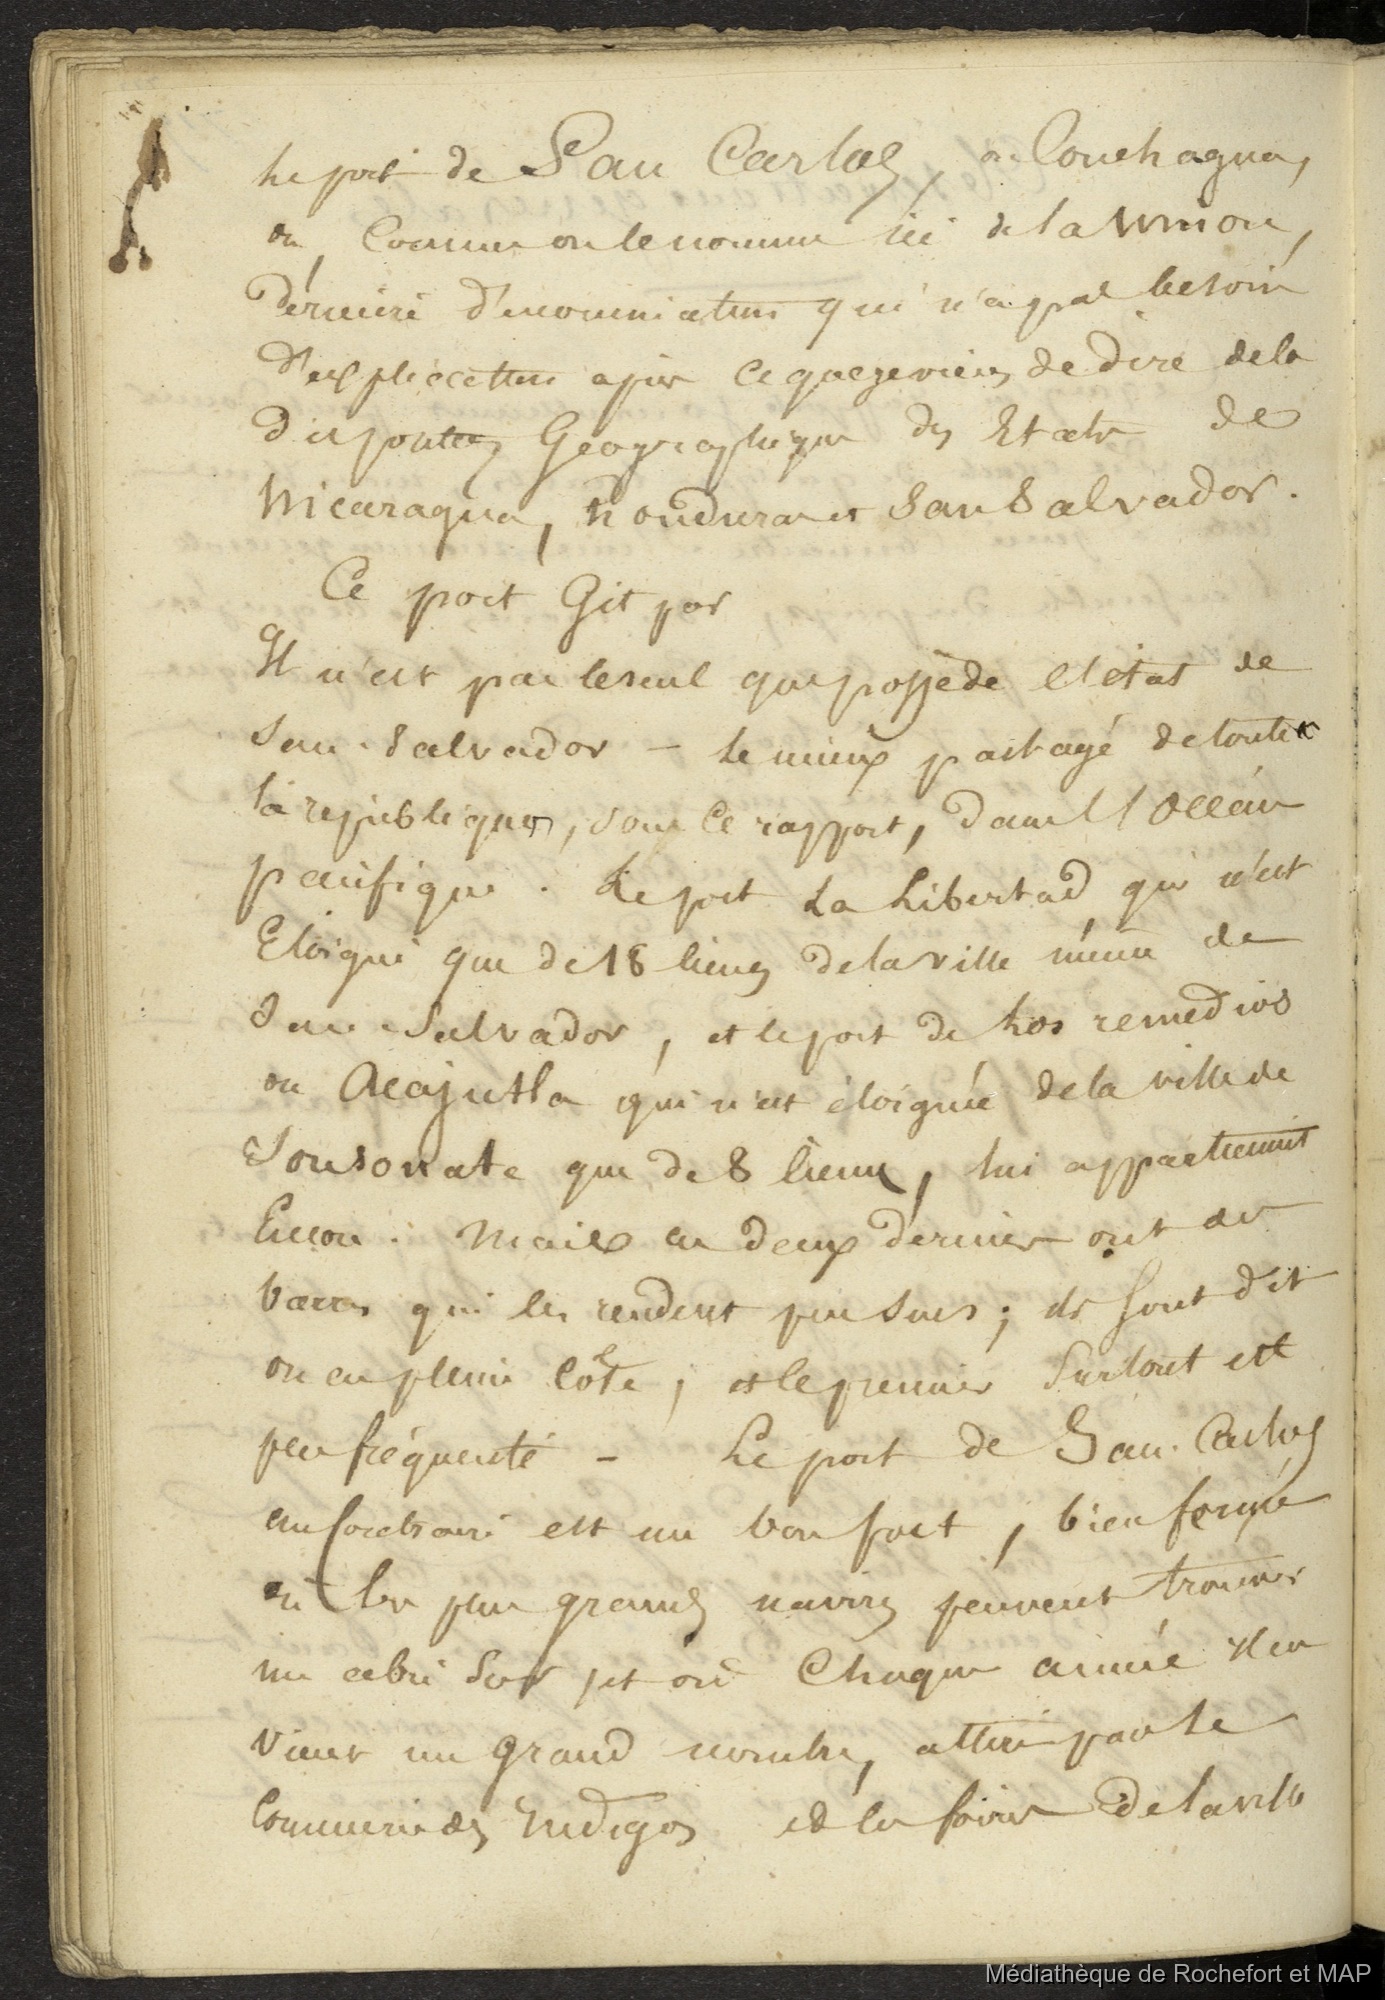 Le port de San Carlos, ou Conchagua,
ou, Comme on le nomme ici de la Union,
dernière dénomination qui n'a pas besoin
d'explication après ce que je viens de dire de la
disposition Géographique des Etats de
Nicaragua, honduras et San Salvador.
Ce port Git par
Il n'est pas le seul que possède l'état de
San-Salvador – le mieux partagé de toutes
la républiques, sous ce rapport, dans l'Océan
pacifique. Le port La Libertad qui n'est
Eloigné que de 18 lieues de la ville même de
San Salvador, et le port de Los remedios
ou Acajutla qui n'est éloignée de la ville de
Sonsonate que de 8 lieues, lui appartiennent
Encore. Mais ces deux derniers ont des
barres qui les rendent peu surs; ils sont dit
on en pleine côte, et le premier surtout est
peu fréquenté – Le port de San-Carlos
au contraire est un bon port, bien fermé
où les plus grands navires peuvent trouver
un abri sur, et où Chaque année il en
vient un grand nombre, attiré par le
Commerce des Indigos et les foires de la ville
Médiathèque de Rochefort et MAP